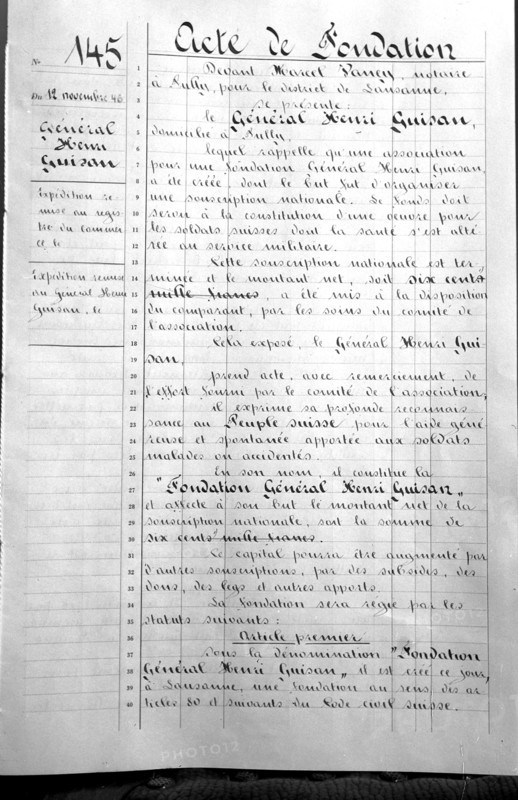 No 145
Du 12 novembre 46
Général
Henri
Guisan
Expédition re-
mise au regis-
tre du commer-
ce, le
Expédition remise
au Général Henri
Guisan, le
Acte de Fondation
1 Devant Marcel Yancy, notaire
2 à Pully, pour le district de Lausanne,
3 se présente:
4 le Général Henri Guisan,
5 domicilié à Pully,
6 lequel rappelle qu'une association
7 pour une Fondation Général Henri Guisan,
8 a été créée, dont le but fut d'organiser
9 une souscription nationale. Le fonds doit
10 servir à la constitution d'une oeuvre pour
11 les soldats suisses dont la santé s'est alté-
12 rée au service militaire.
13 Cette souscription nationale est ter-
14 minée et le montant net, soit six cents
15 mille francs, a été mis à la disposition
16 du comparant, par les soins du comité de
17 l'association.
18 Cela exposé, le Général Henri Gui-
19 san,
20 prend acte, avec remerciement, de
21 l'effort fourni par le comité de l'association;
22 il exprime sa profonde reconnais-
23 sance au Peuple suisse pour l'aide géné-
24 reuse et spontanée apportée aux soldats
25 malades ou accidentés.
26 En son nom, il constitue la
27 "Fondation Général Henri Guisan"
28 et affecte à son but le montant net de la
29 souscription nationale, soit la somme de
30 six cents mille francs.
31 Le capital pourra être augmenté par
32 d'autres souscriptions, par des subsides, des
33 dons, des legs et autres apports.
34 La fondation sera régie par les
35 statuts suivants:
36 Article premier
37 Sous la dénomination "Fondation
38 Général Henri Guisan", il est créé ce jour,
39 à Lausanne, une fondation au sens des ar-
40 ticles 80 et suivants du Code civil suisse.
PHOTO12